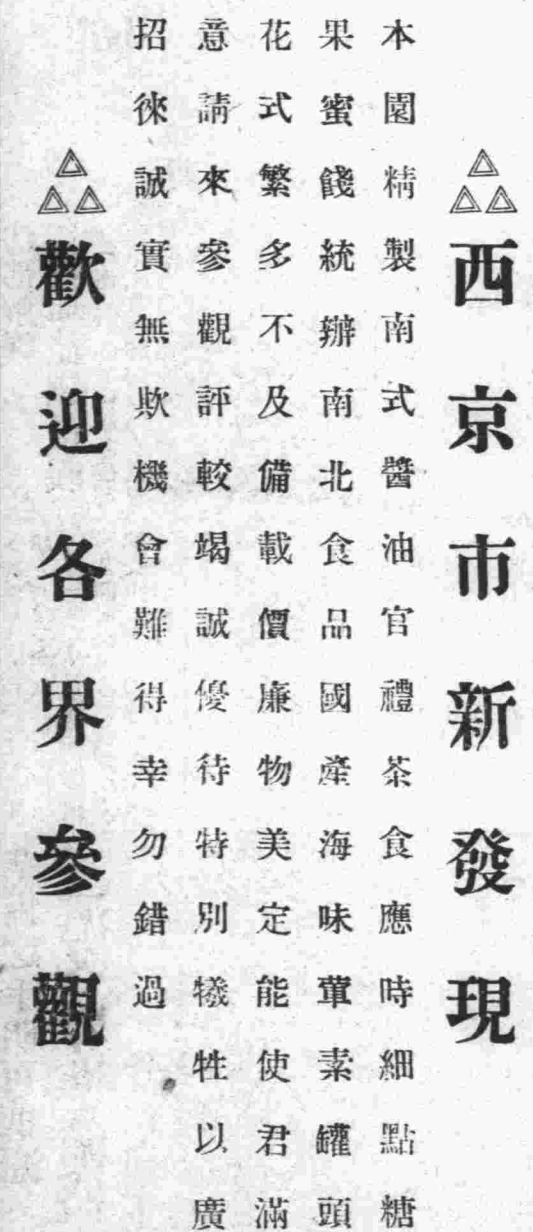 西京市新發現
本園精製南式醬油官禮茶食應時細點糖
果蜜餞統辦南北食品國產海味葷素罐頭
花式繁多不及備載價廉物美定能使君滿
意請來參觀評較竭誠優待特別犧牲以廣
招徠誠實無欺機會難得幸勿錯過
歡迎各界參觀